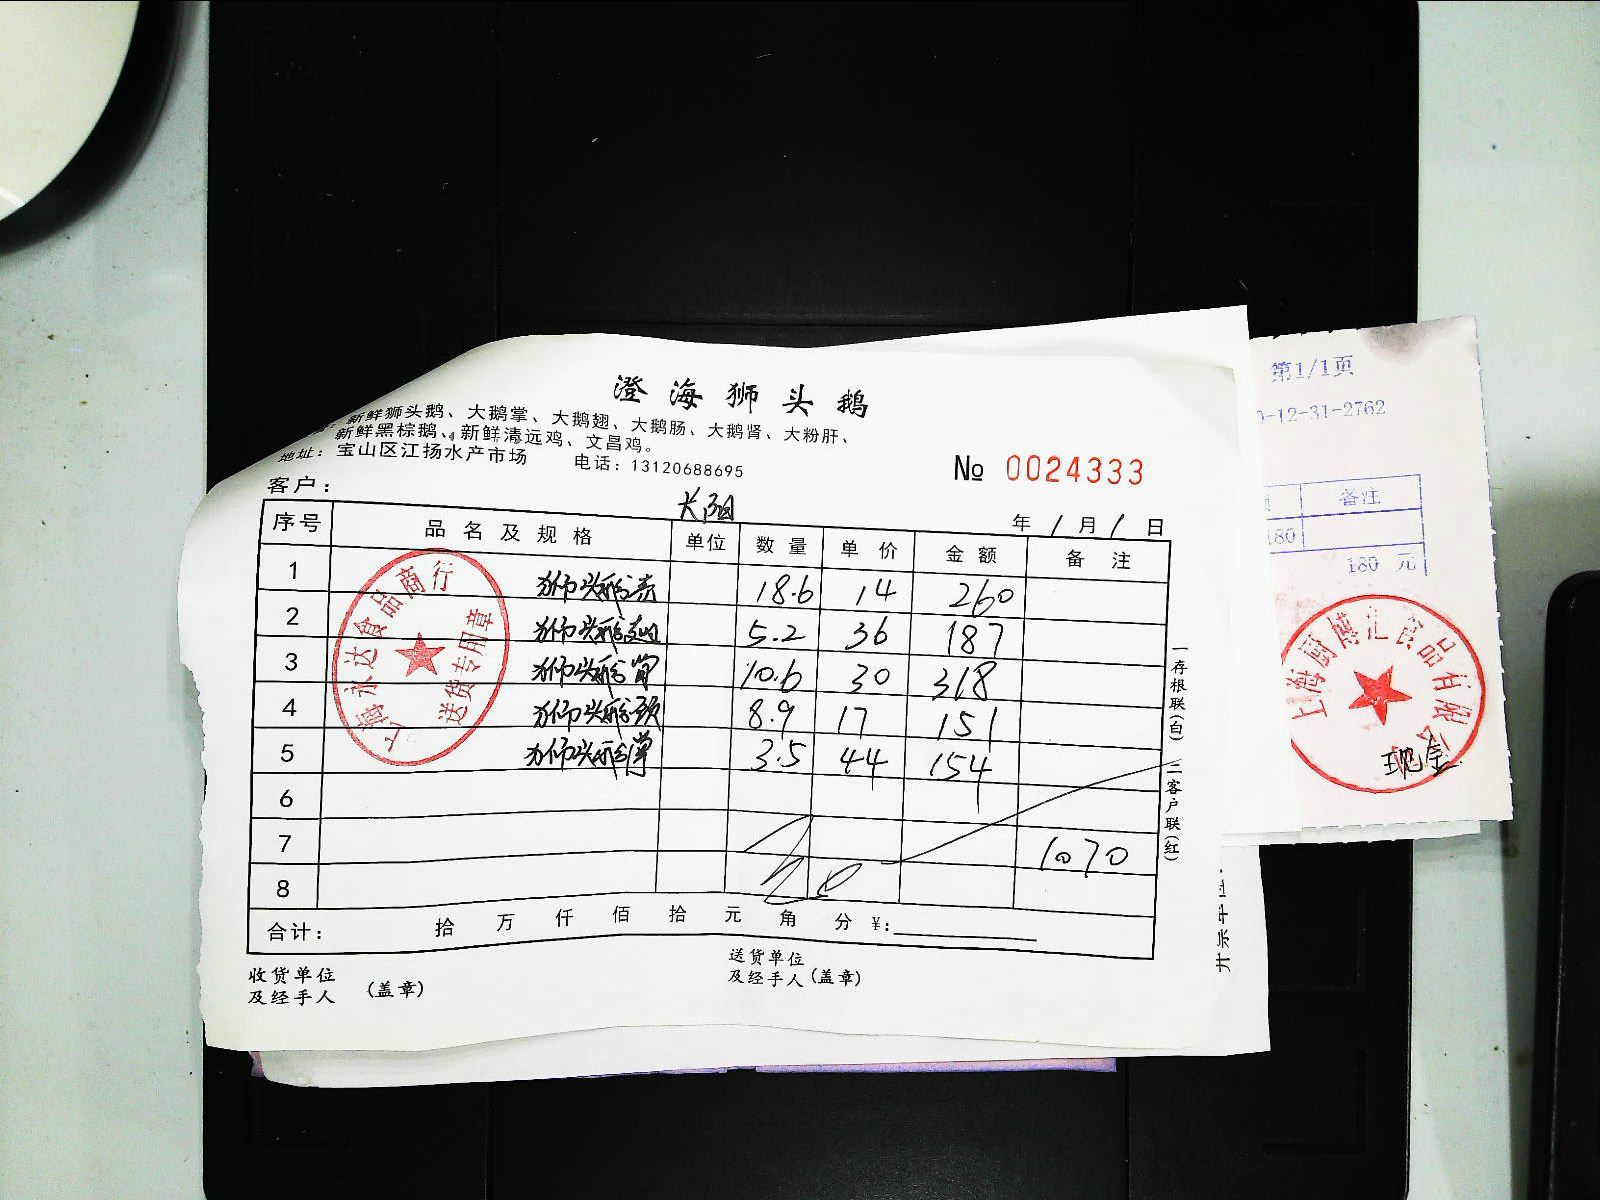 澄海狮头鹅
新鲜狮头鹅、大鹅掌、大鹅翅、大鹅肠、大鹅肾、大粉肝、
新鲜黑棕鹅、新鲜清远鸡、文昌鸡。
地址：宝山区江扬水产市场 电话：13120688695
№ 0024333
客户：
年 1 月 1 日
序号 品名及规格 单位 数量 单价 金额 备注
1 狮头鹅 18.6 14 260
2 狮头鹅 5.2 36 187
3 狮头鹅肾 10.6 30 318
4 狮头鹅颈 8.9 17 151
5 狮头鹅掌 3.5 44 154
6
7 1070
8
合计： 拾 万 仟 佰 拾 元 角 分 ¥：
收货单位 及经手人 （盖章）
送货单位 及经手人（盖章）
一存根联（白） 二客户联（红）
上海永达食品商行
送货专用章
第1/1页
0-12-31-2762
备注
180
180 元
上海厨博汇食品有限公司
现金